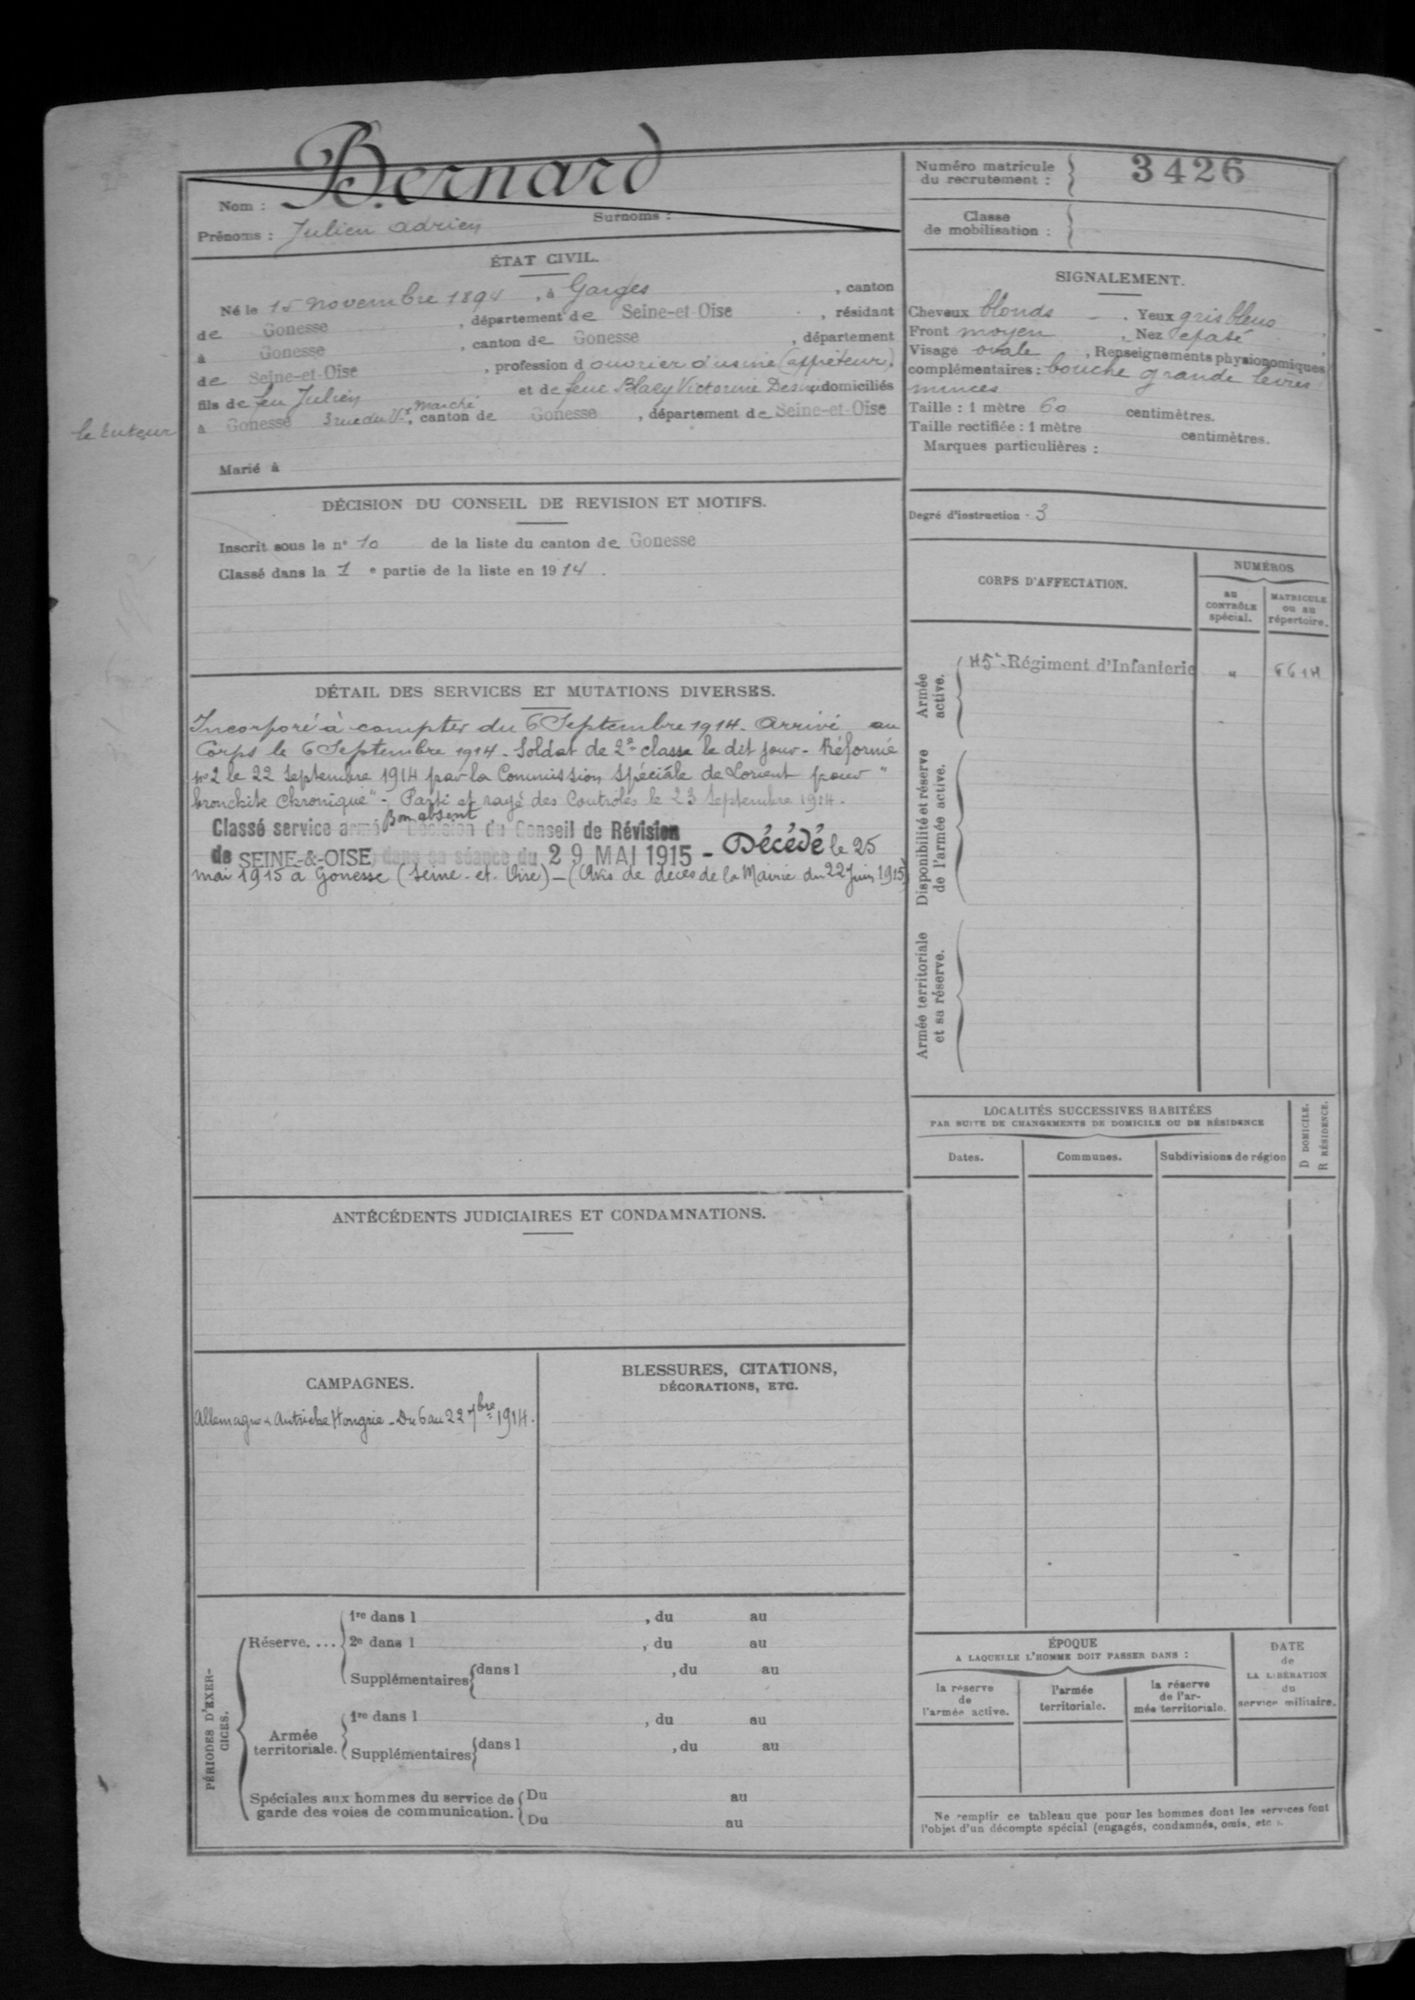 Nom : Bernard
Surnoms :
Prénoms : Julien Adrien
Numéro matricule
du recrutement :
3426
Classe
de mobilisation :
ÉTAT CIVIL.
Né le 15 novembre 1894, à Garges, canton
de Gonesse, département de Seine-et-Oise, résidant
à Gonesse, canton de Gonesse, département
de Seine-et-Oise, profession d ouvrier d'usine (appréteur),
fils de feu Julien et de feue Blaey Victorine domiciliés
à Gonesse 3 rue du Marché, canton de Gonesse, département de Seine-et-Oise
le tuteur
Marié à
SIGNALEMENT.
Cheveux blonds. Yeux gris bleus
Front moyen, Nez épaté
Visage ovale, Renseignements physionomiques
complémentaires : bouche grande lèvres
minces
Taille : 1 mètre 60 centimètres.
Taille rectifiée : 1 mètre centimètres.
Marques particulières :
Degré d'instruction 3
DÉCISION DU CONSEIL DE REVISION ET MOTIFS.
Inscrit sous le n° 10 de la liste du canton de Gonesse
Classé dans la 1e partie de la liste en 1914.
CORPS D'AFFECTATION.
NUMÉROS
au
CONTRÔLE
spécial.
MATRICULE
ou au
répertoire.
Armée
active.
Régiment d'Infanterie "
Disponibilité et réserve
de l'armée active.
Armée territoriale
et sa réserve.
DÉTAIL DES SERVICES ET MUTATIONS DIVERSES.
Incorporé à compter du 6 Septembre 1914. Arrivé au
Corps le 6 Septembre 1914. Soldat de 2e classe le dit jour. Réformé
n°2 le 22 Septembre 1914 par la Commission Spéciale de Lorient pour "
bronchite chronique". Parti et rayé des Contrôles le 23 Septembre 1914.
Bon absent
Classé service armé Décision du Conseil de Révision
de SEINE-&-OISE dans sa séance du 29 MAI 1915 - Décédé le 25
mai 1915 à Gonesse (Seine-et-Oise) - (Avis de décès de la Mairie du 22 Juin 1915)
LOCALITÉS SUCCESSIVES HABITÉES
PAR SUITE DE CHANGEMENTS DE DOMICILE OU DE RÉSIDENCE
Dates.
Communes.
Subdivisions de région
D DOMICILE.
R RÉSIDENCE.
ANTÉCÉDENTS JUDICIAIRES ET CONDAMNATIONS.
CAMPAGNES.
Allemagne & Autriche Hongrie - Du 6 au 22 7bre 1914.
BLESSURES, CITATIONS,
DÉCORATIONS, ETC.
PÉRIODES D'EXER-
CICES.
Réserve. ...
1re dans l , du au
2e dans l , du au
Supplémentaires dans l , du au
Armée
territoriale.
1re dans l , du au
Supplémentaires dans l , du au
Spéciales aux hommes du service de
garde des voies de communication.
Du au
Du au
ÉPOQUE
A LAQUELLE L'HOMME DOIT PASSER DANS :
la réserve
de
l'armée active.
l'armée
territoriale.
la réserve
de l'ar-
mée territoriale.
DATE
de
LA LIBÉRATION
du
service militaire.
Ne remplir ce tableau que pour les hommes dont les services font
l'objet d'un décompte spécial (engagés, condamnés, omis, etc.).